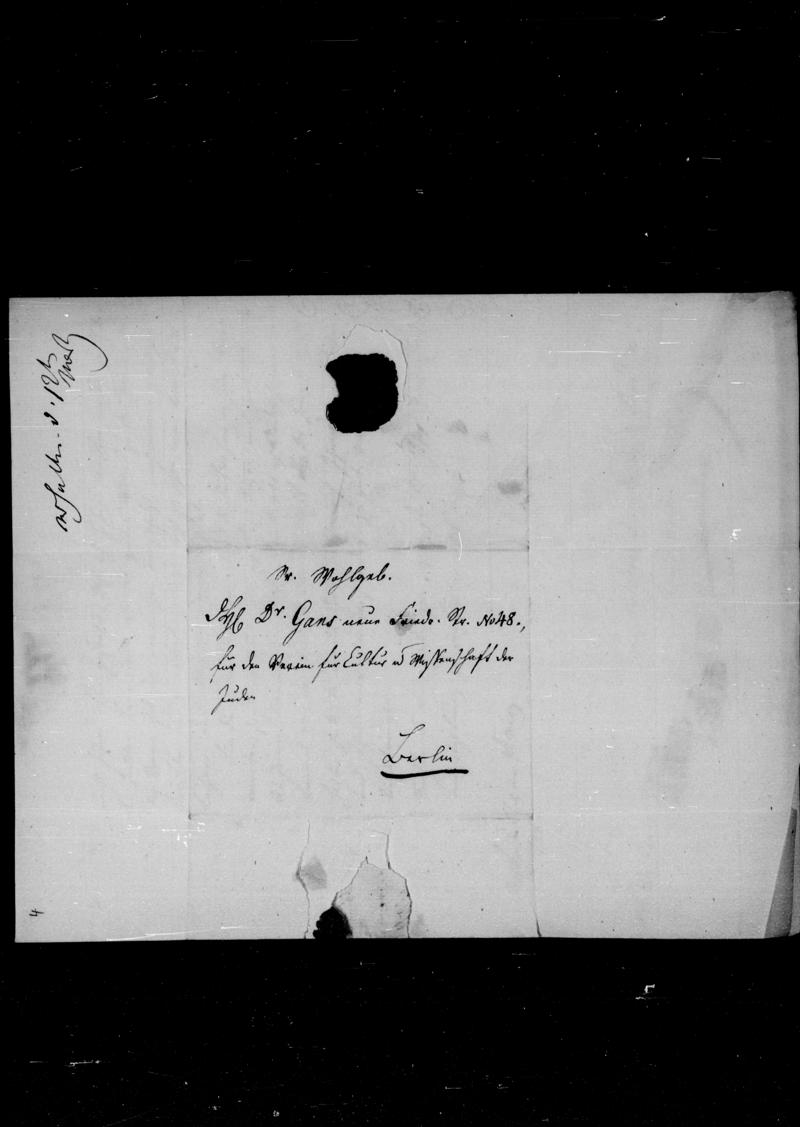 Sr. Wohlgeb.
Dr. Gans neue Friedr. Str. No 48.,
für den Verein für Cultur u Wissenschaft der
Juden
Berlin
erhalten d. 12t
4